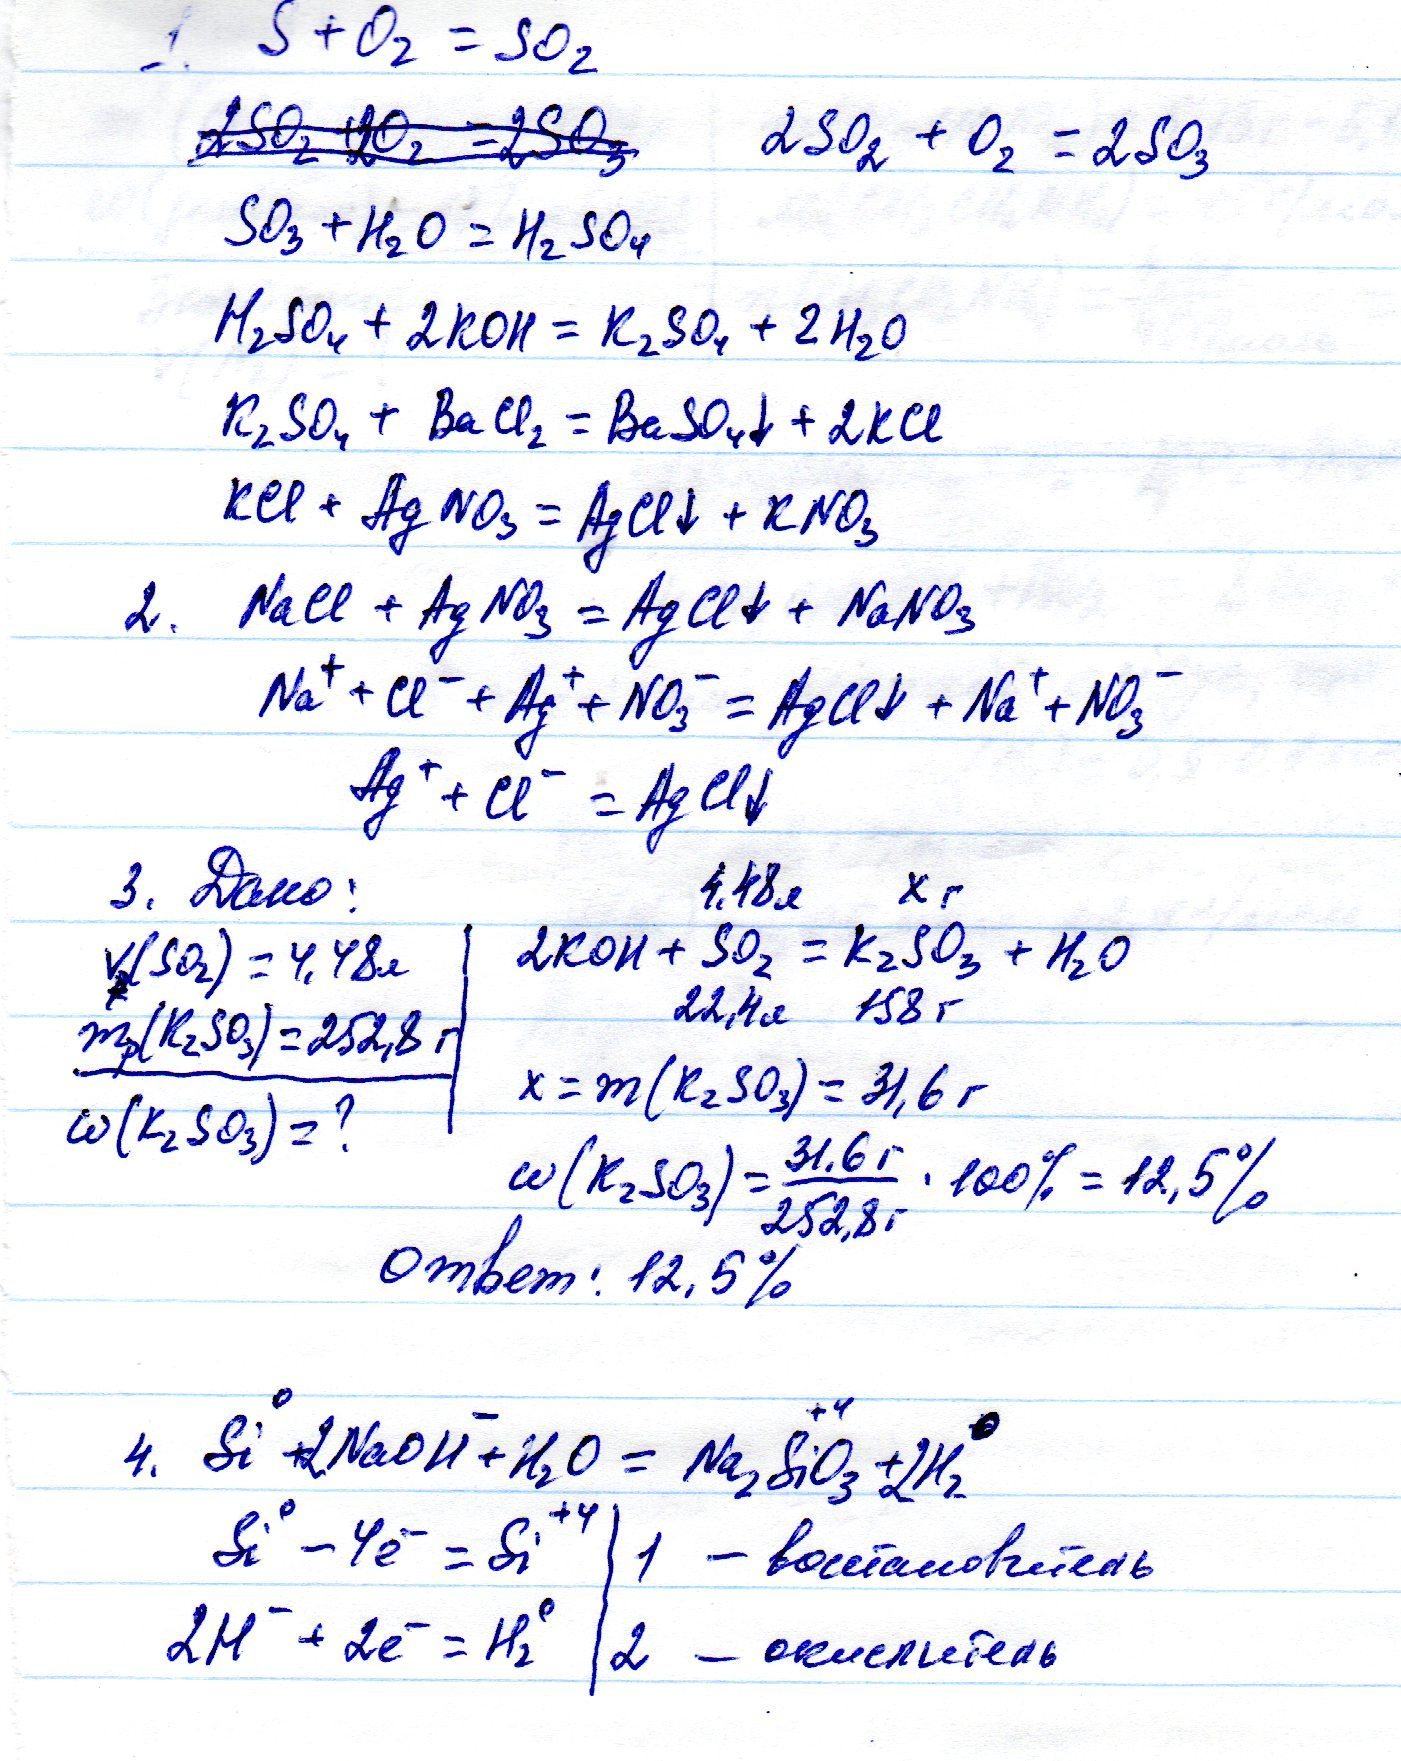 1. S + O₂ = SO₂
2SO₂ + 2O₂ = 2SO₃ 2SO₂ + O₂ = 2SO₃
SO₃ + H₂O = H₂SO₄
H₂SO₄ + 2KOH = K₂SO₄ + 2H₂O
K₂SO₄ + BaCl₂ = BaSO₄↓ + 2KCl
KCl + AgNO₃ = AgCl↓ + KNO₃
2. NaCl + AgNO₃ = AgCl↓ + NaNO₃
Na⁺ + Cl⁻ + Ag⁺ + NO₃⁻ = AgCl↓ + Na⁺ + NO₃⁻
Ag⁺ + Cl⁻ = AgCl↓
3. Дано:
V(SO₂) = 4,48л
mр(K₂SO₃) = 252,8 г
ω(K₂SO₃) = ?
4,48л x г
2KOH + SO₂ = K₂SO₃ + H₂O
22,4л 158 г
x = m(K₂SO₃) = 31,6 г
ω(K₂SO₃) = 31,6 г / 252,8г · 100% = 12,5%
Ответ: 12,5%
4. Si⁰ + 2NaOH⁻ + H₂O = Na₂Si⁺⁴O₃ + 2H₂⁰
Si⁰ − 4e⁻ = Si⁺⁴ | 1 – восстановитель
2H⁻ + 2e⁻ = H₂⁰ | 2 – окислитель